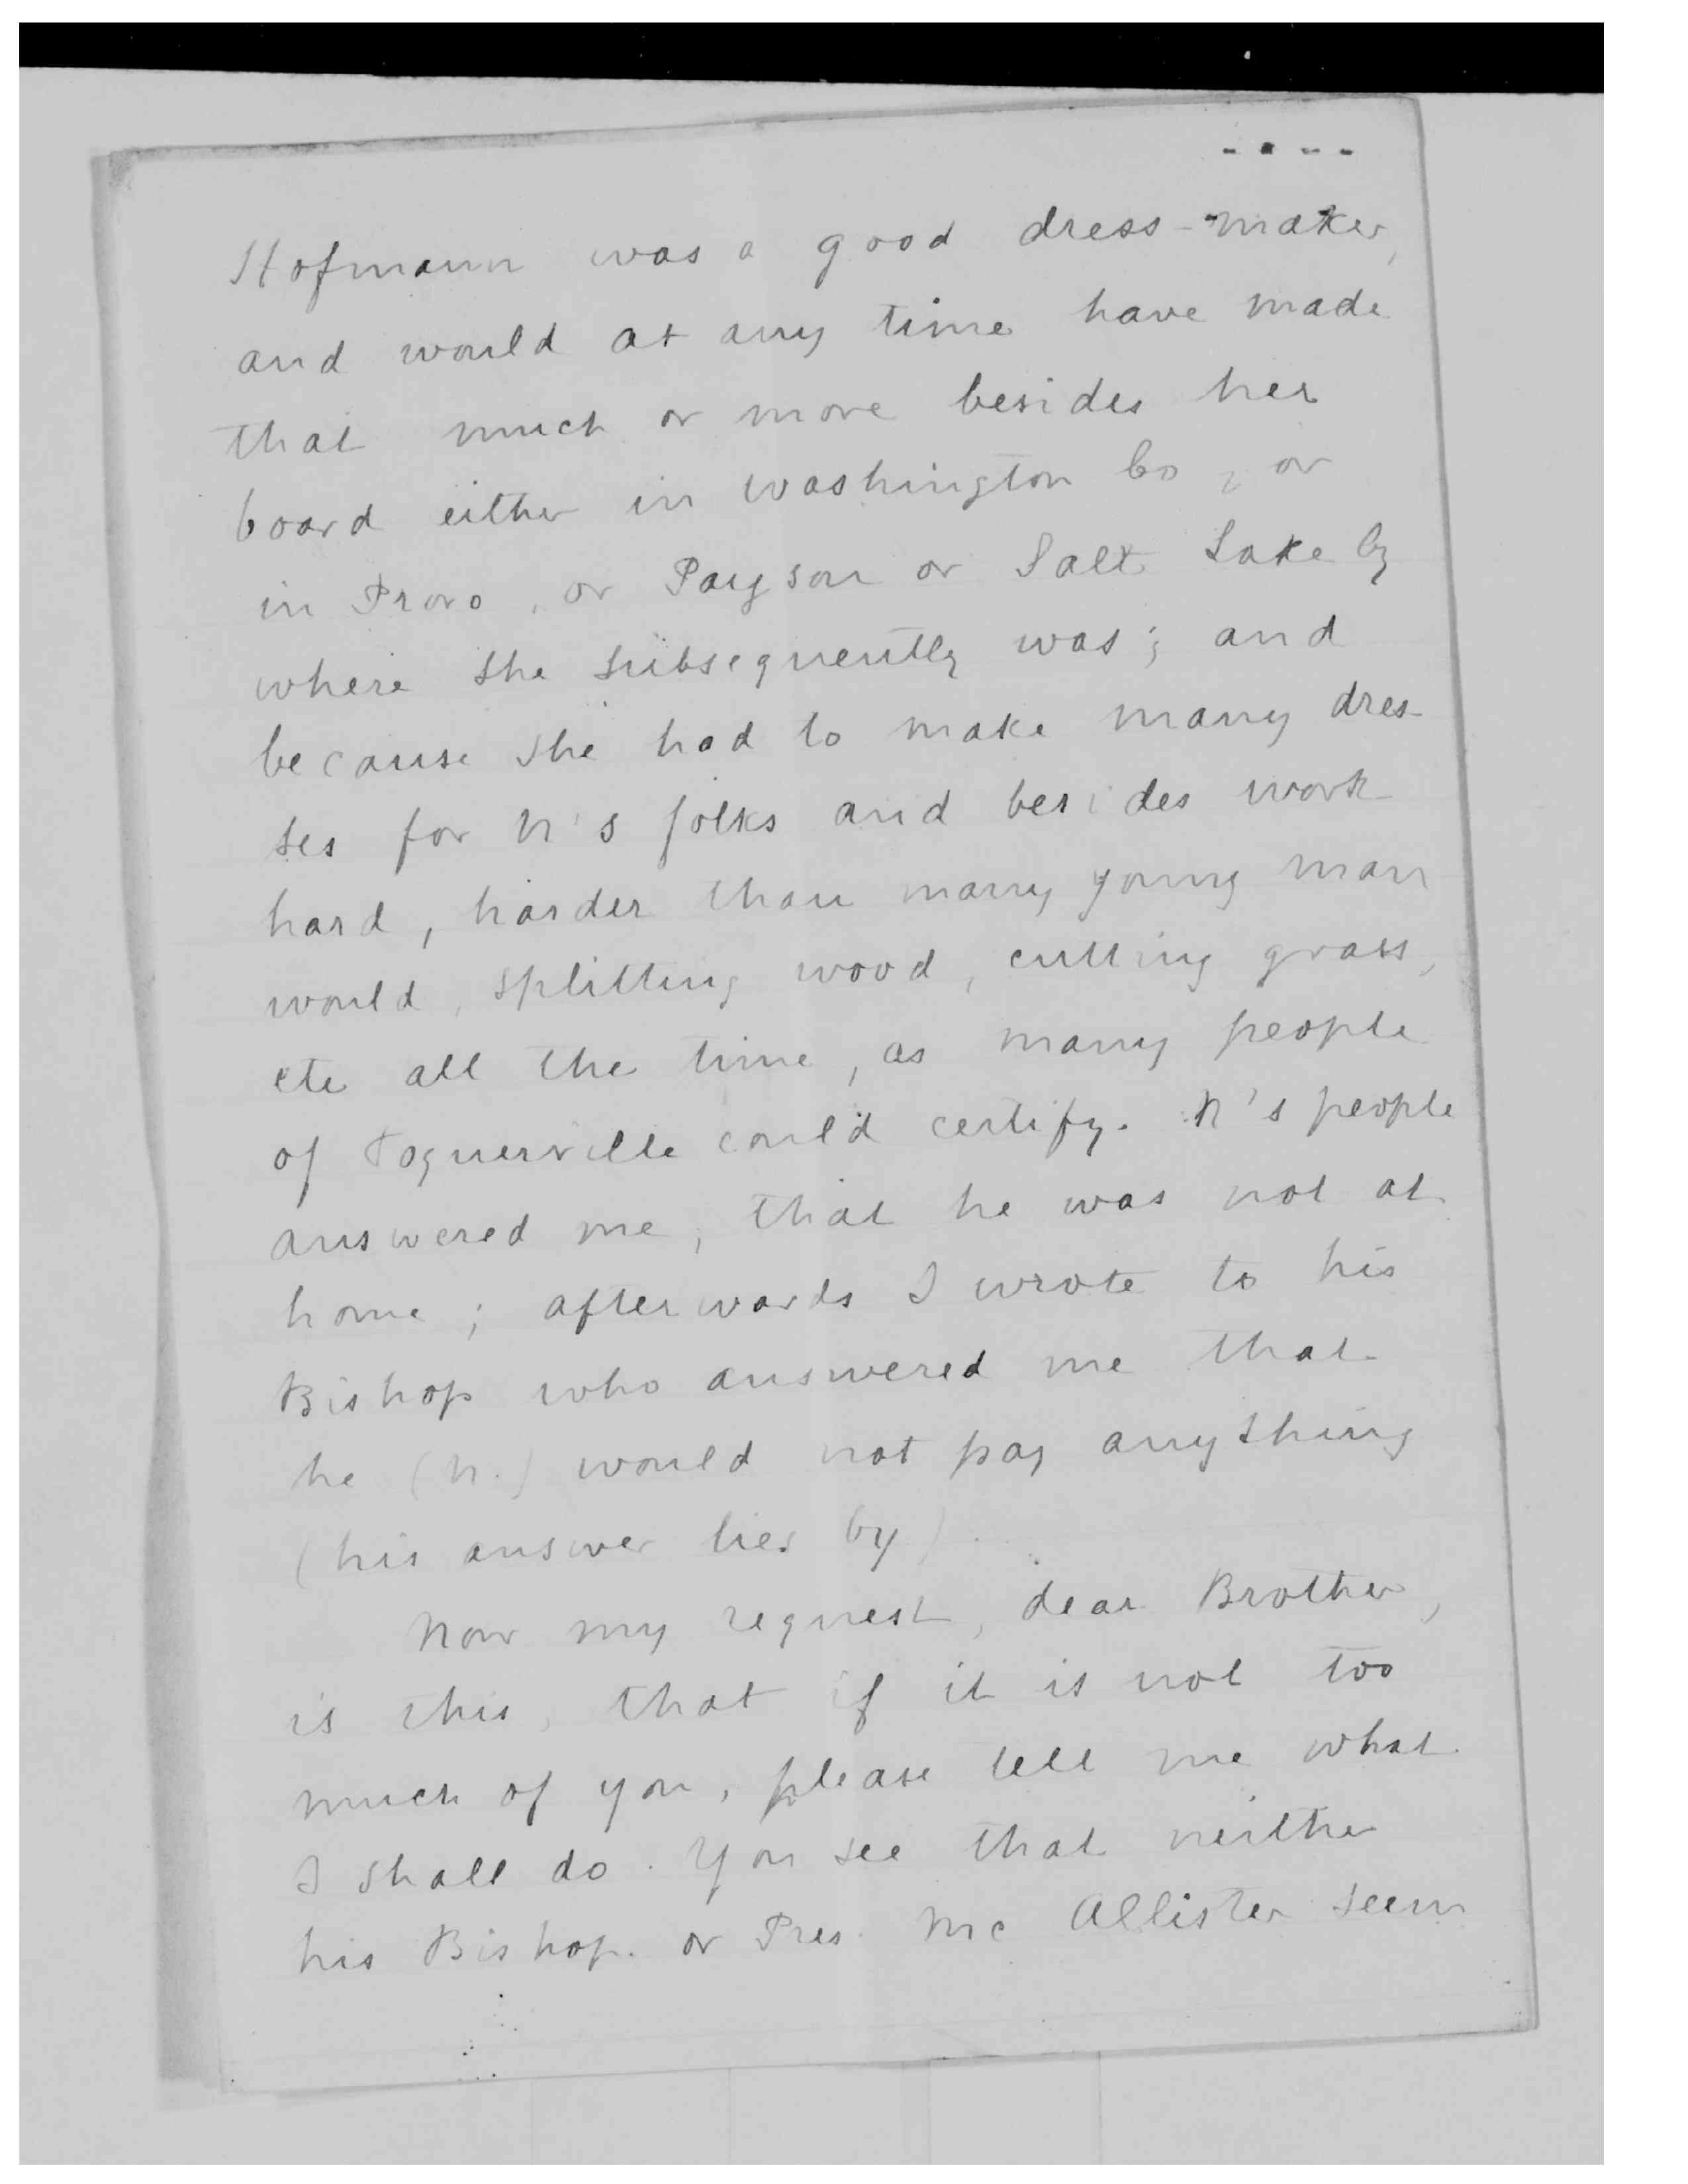 Hofmann was a good dress-maker,
and would at any time have made
that much or more besides her
board either in Washington Co, or
in Provo, or Payson or Salt Lake Cy
where she subsequently was; and
because she had to make many dres-
ses for N's folks and besides work
hard, harder than many young man
would, splitting wood, cutting grass,
etc all the time, as many people
of Toquerville could certify. N's people
answered me, that he was not at
home; afterwards I wrote to his
Bishop who answered me that
he (N.) would not pay anything
(his answer lies by).
Now my request, dear Brother,
is this, that if it is not too
much of you, please tell me what
I shall do. You see that neither
his Bishop. or Pres. Mc Allister seem